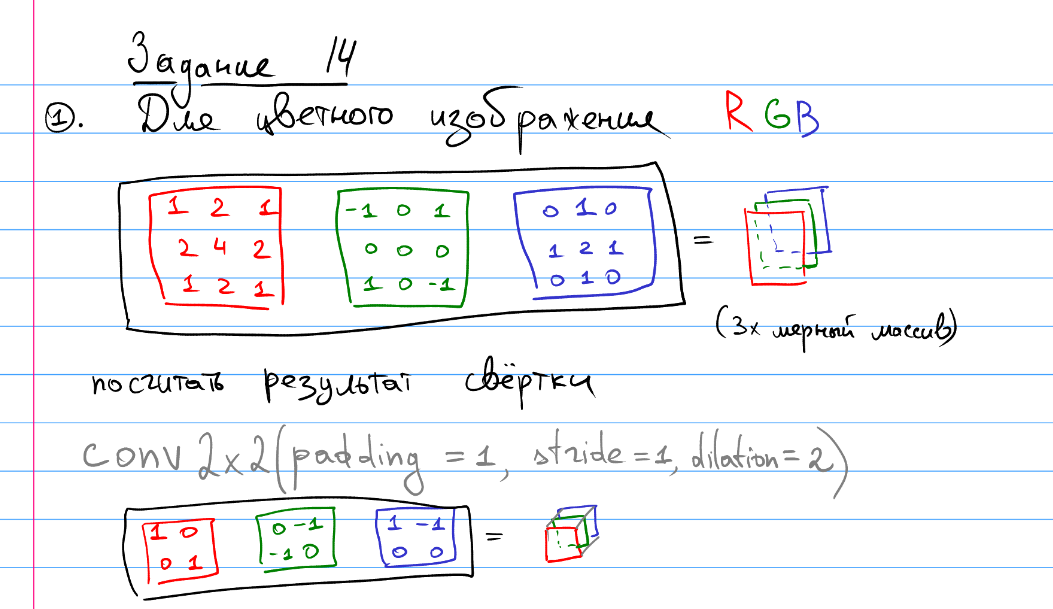 Задание 14
①. Для цветного изображения RGB
1 2 1 -1 0 1 0 1 0
2 4 2 0 0 0 1 2 1 =
1 2 1 1 0 -1 0 1 0
(3х мерный массив)
посчитать результат свёртки
conv 2x2(padding = 1, stride = 1, dilation = 2)
1 0 0 -1 1 -1 =
0 1 -1 0 0 0